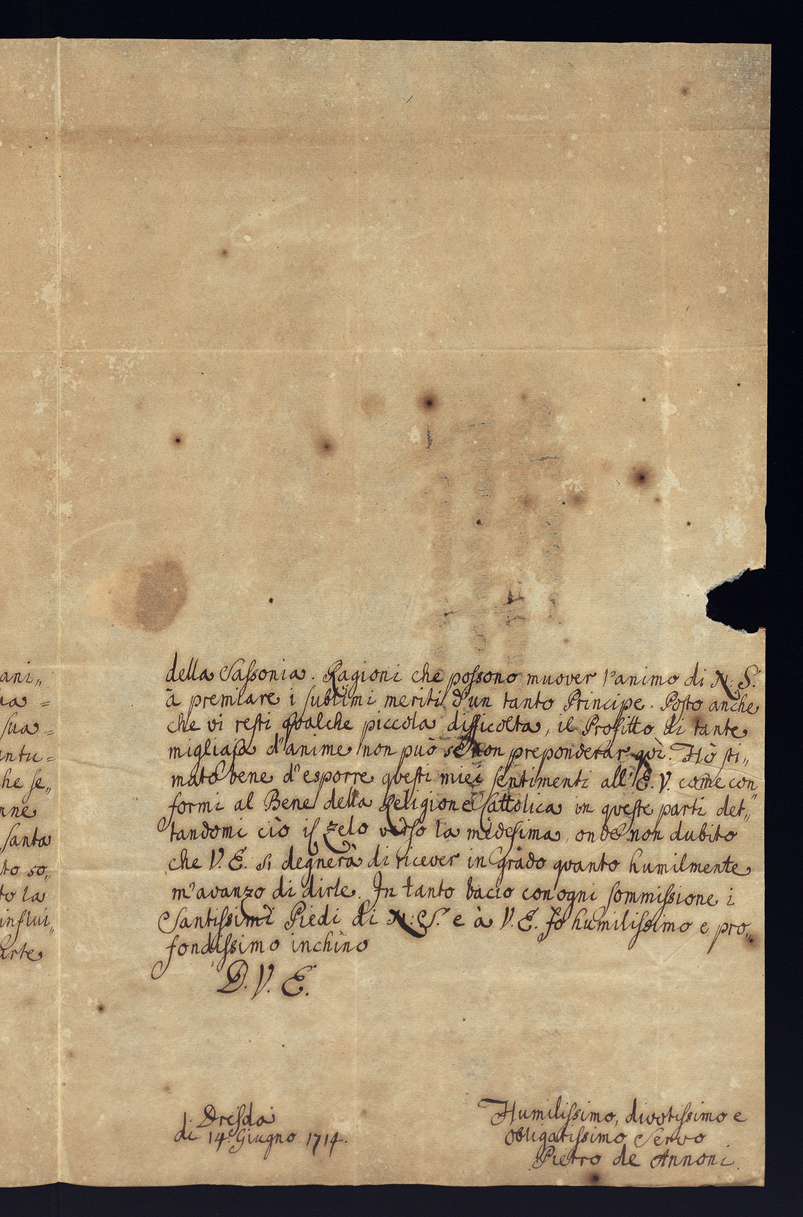 ani„
sua=
intu=
he se„
nne
Santa
to so„
to la
influi„
arte
della Sassonia. Ragioni che possono muover l'animo di N: S.
à premiare i sublimi meriti d'un tanto Principe. Posto anche
che vi resti qualche piccola difficolta, il Profitto di tante
migliaja d'anime non può se non preponderar qui. Hò sti„
mato bene d'esporre questi miei sentimenti all'E. V. come con
formi al Bene della Religione Cattolica in queste parti det„
tandomi ciò il zelo verso la medesima, onde non dubito
che V. E. si degnerà di ricever in grado quanto humilmente
m'avanzo di dirle. In tanto bacio con ogni sommissione i
Santissimi Piedi di N: S. e à V. E. fo humilissimo e pro„
fondissimo inchino
D. V. E.
Dresda
di 14 Giugno 1714.
Humilissimo, divotissimo e
obligatissimo Servo
Pietro de Annoni.